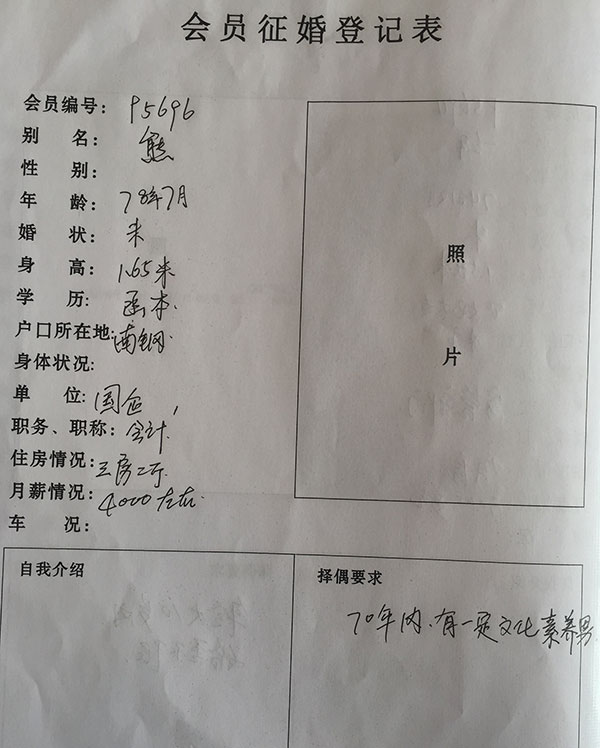 会员征婚登记表
会员编号: P5696
别 名: 熊
性 别:
年 龄: 78年7月
婚 状: 未
身 高: 1.65米
学 历: 函本.
户口所在地: 南钢
身体状况:
单 位: 国企,
职务、职称: 会计.
住房情况: 三房二厅.
月薪情况: 4000左右.
车 况:
照
片
自我介绍
择偶要求
70年内.有一定文化素养男